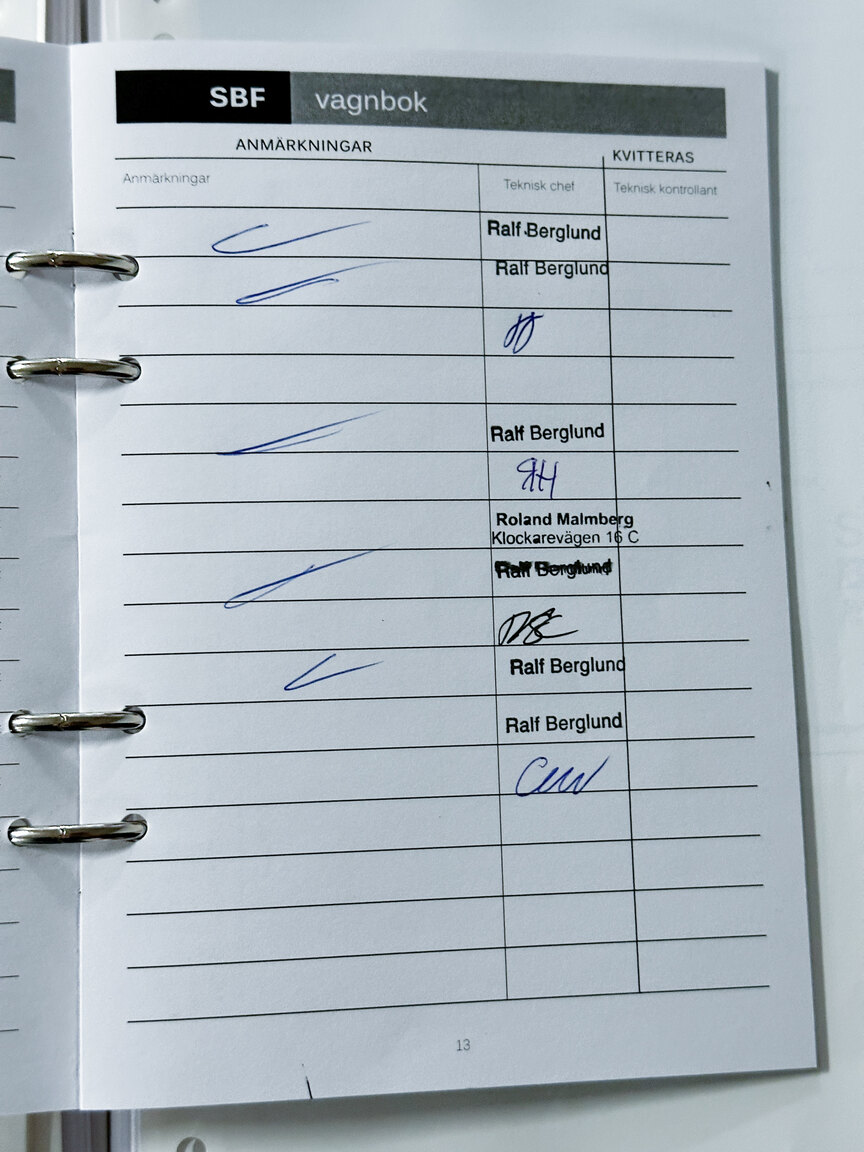 SBF vagnbok
ANMÄRKNINGAR KVITTERAS
Anmärkningar Teknisk chef Teknisk kontrollant
Ralf Berglund
Ralf Berglund
Ralf Berglund
Roland Malmberg
Klockarevägen 16 C
Ralf Berglund
Ralf Berglund
Ralf Berglund
13